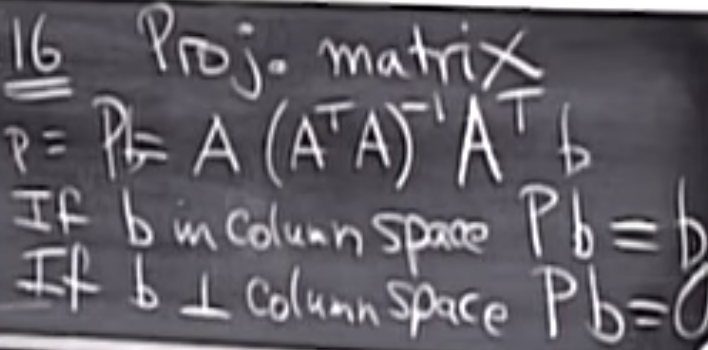 16 Proj. matrix
p = Pb = A (AᵀA)⁻¹ Aᵀ b
If b in column space Pb = b
If b ⊥ column space Pb = 0